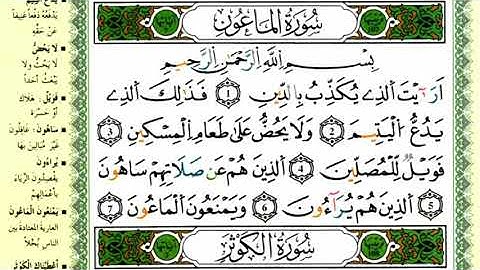 سُورَةُ الْمَاعُونِ
بِسْمِ اللَّهِ الرَّحْمَٰنِ الرَّحِيمِ
اَرَٰٓيْتَ اَلذِے يُكَذِّبُ بِالدِّينِ 1 فَذَٰلِكَ اَلذِے
يَدُعُّ الْيَتِيمَ 2 وَلَا يَحُضُّ عَلَىٰ طَعَامِ الْمِسْكِينِ 3
فَوَيْلٌ لِّلْمُصَلِّينَ 4 اَلذِينَ هُمْ عَن صَلَاتِهِمْ سَاهُونَ
5 اَلذِينَ هُمْ يُرَآءُونَ 6 وَيَمْنَعُونَ الْمَاعُونَ 7
سُورَةُ الْكَوْثَرِ
يَدْفَعُهُ دَفْعاً عَنِيفاً
عَنْ حَقِّهِ
لَا يَحُضُّ
لَا يَحُثُّ وَلَا
يَبْعَثُ أَحَداً
فَوَيْلٌ: هَلَاكٌ
أَوْ حَسْرَةٌ
سَاهُونَ: غَافِلُونَ
غَيْرُ مُبَالِينَ بِهَا
يُرَاءُونَ
يَقْصِدُونَ الرِّيَاءَ
بِأَعْمَالِهِمْ
يَمْنَعُونَ الْمَاعُونَ
العَارِيةَ المُعْتَادَةَ بَيْنَ
النَّاسِ بُخْلاً
أَعْطَيْنَاكَ الْكَوْثَرَ